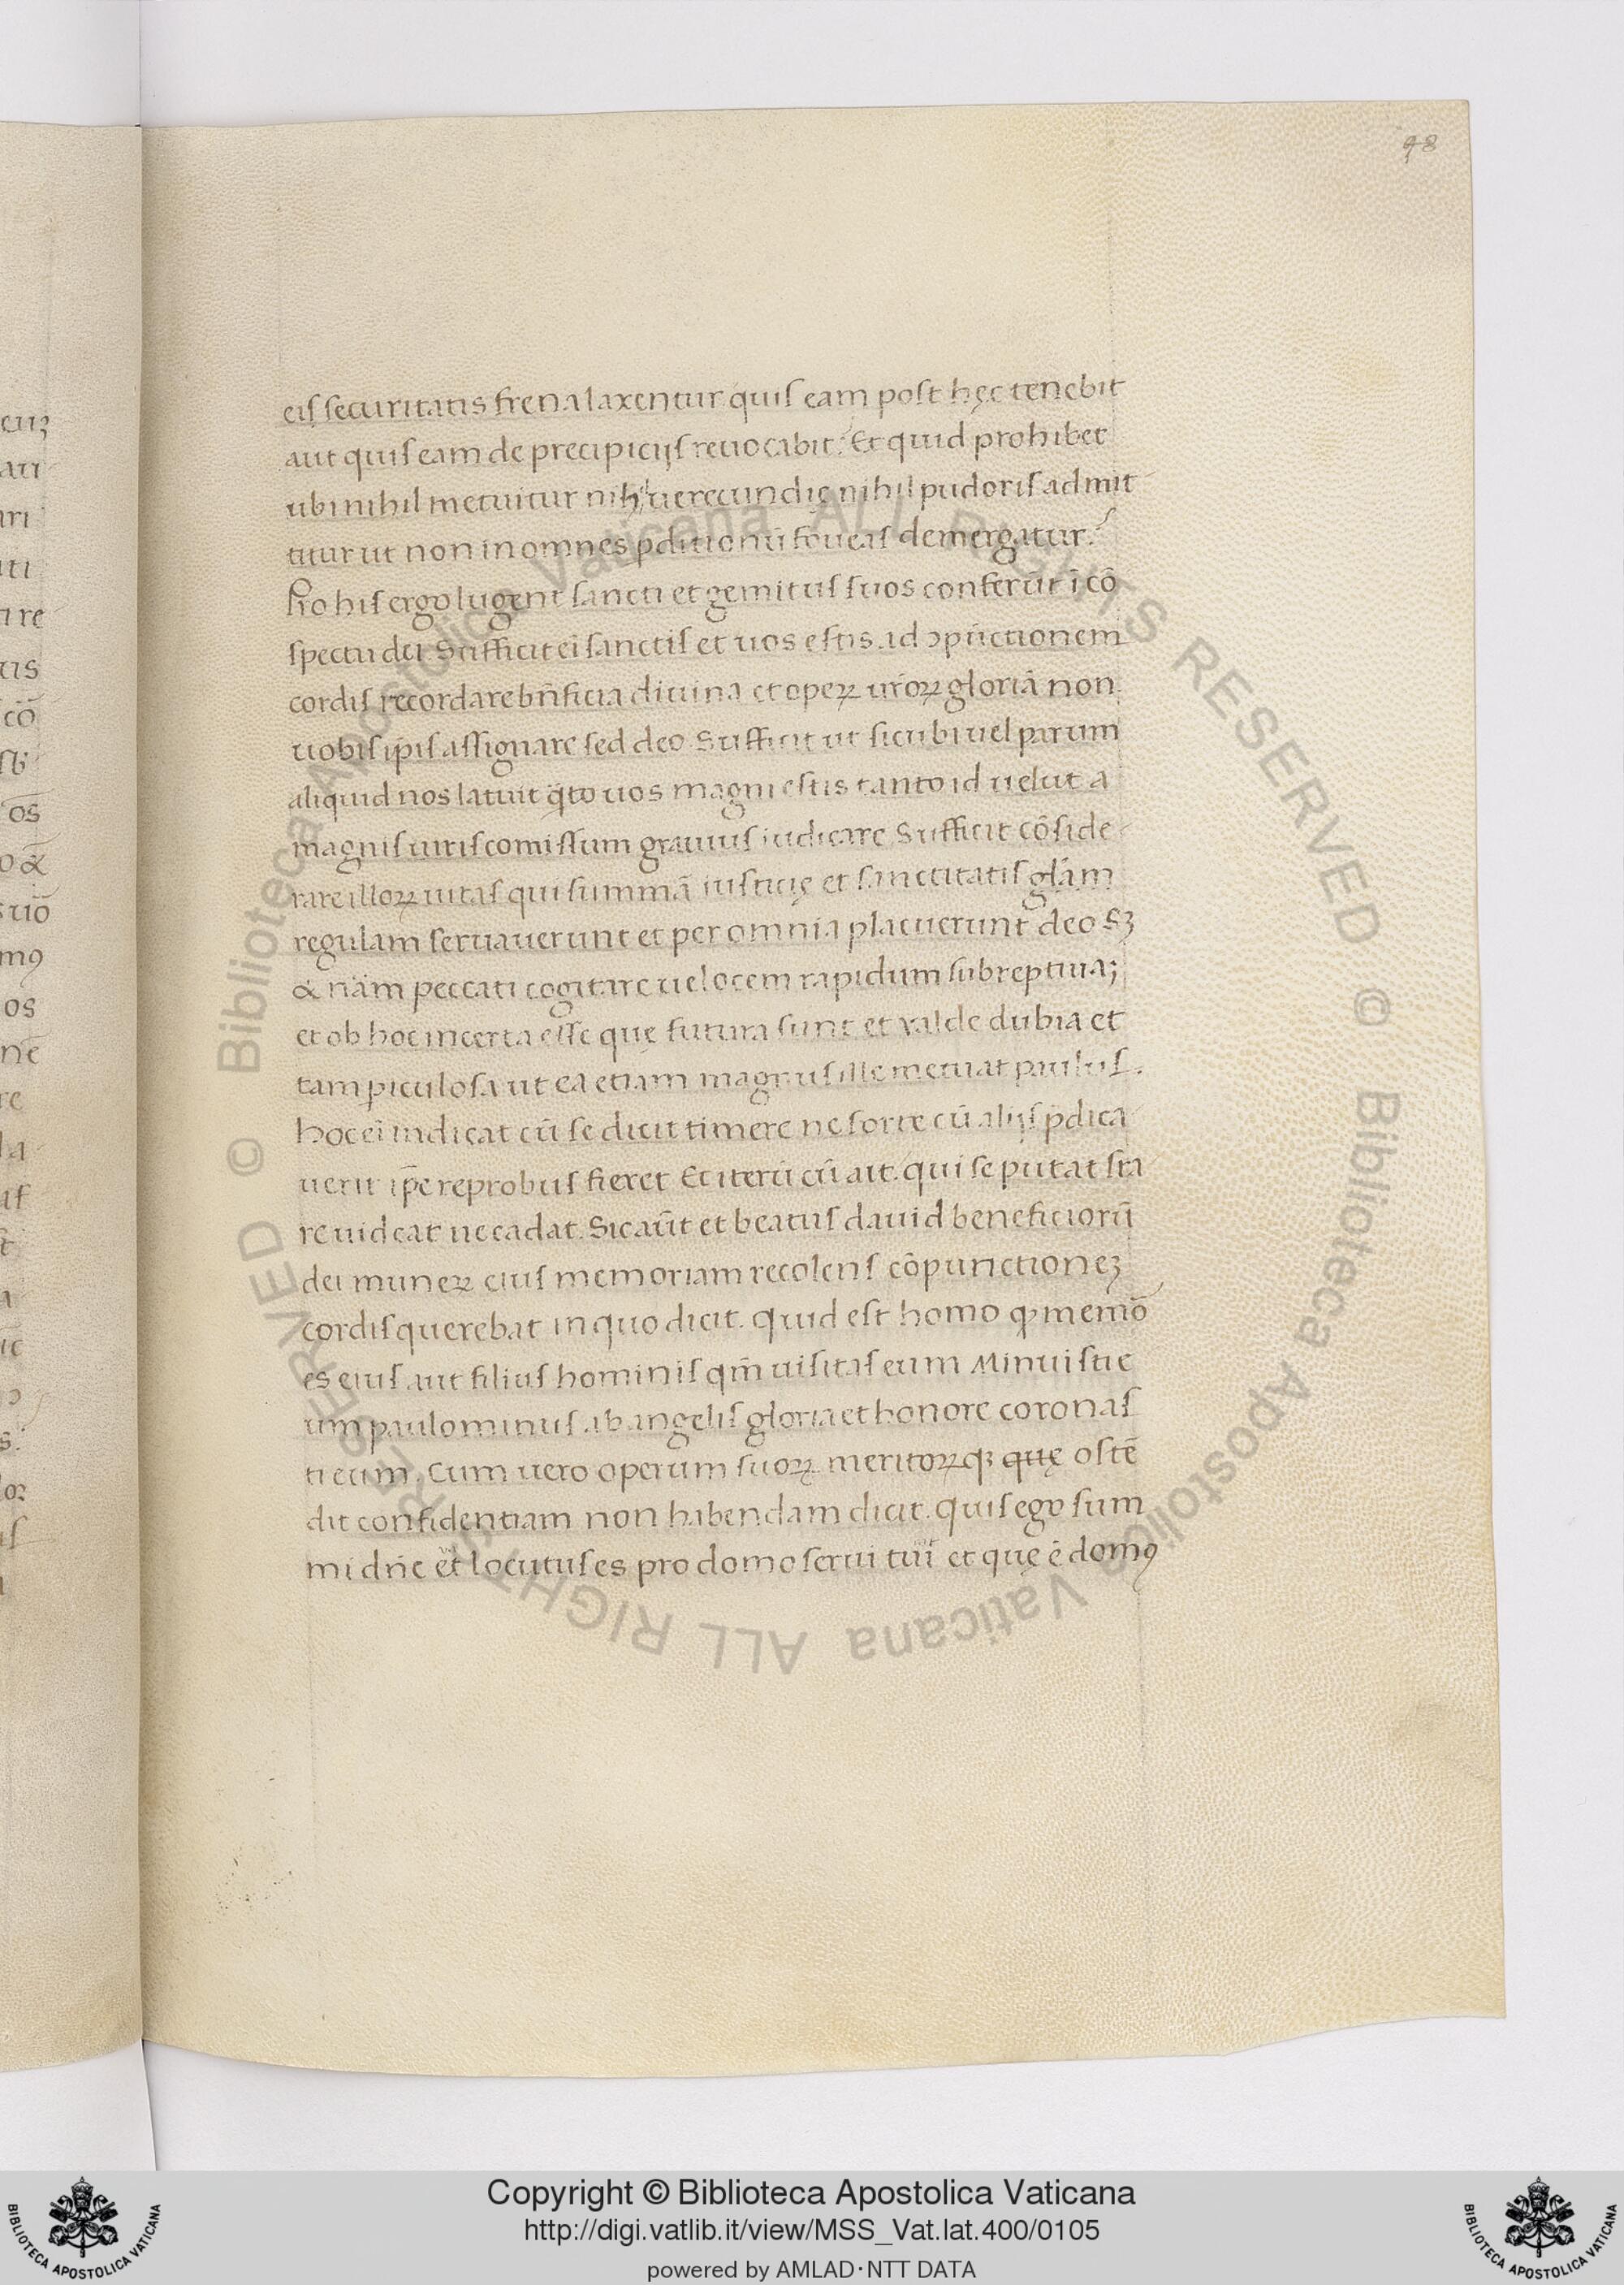 98
eis securitatis frena laxentur quis eam post hęc tenebit
aut quis eam de precipicijs reuocabit? Et quid prohibet
ubi nihil metuitur nihil uerecundię nihil pudoris admit
titur ut non in omnes p̱ditionū foueas demergatur?
Pro his ergo lugent sancti et gemitus suos conferūt ī cō
spectu dei Sufficit eī sanctis et uos estis ad ɔpūctionem
cordis recordare bn̄ficia diuina et opeꝝ ur̄oꝝ gloriā non
uobis ip̄is assignare sed deo Sufficit ut sicubi uel parum
aliquid nos latuit q̄to uos magni estis tanto id uelut a
magnis uiris comissum grauius iudicare Sufficit cōside
rare illoꝝ uitas qui summā iusticię et sanctitatis gl̄am
regulam seruauerunt et per omnia placuerunt deo Sꝫ
& nām peccati cogitare uelocem rapidum subreptiua;
et ob hoc incerta esse quę futura sunt et valde dubia et
tam ꝑiculosa ut ea etiam magnus ille metuat paulus.
hoc eī indicat cū se dicit timere ne forte cū alijs p̄dica
uerit ip̄e reprobus fieret Et iterū cū ait. qui se putat sta
re uideat ne cadat. Sic aūt et beatus dauid beneficiorū
dei muneꝝ eius memoriam recolens cōpunctioneꝫ
cordis querebat in quo dicit. quid est homo ꝙ memō
es eius aut filius hominis qm̄ uisitas eum Minuisti e
um paulominus ab angelis gloria et honore coronas
ti eum. Cum uero operum suoꝝ meritoꝝqꝫ quę ostē
dit confidentiam non habendam dicit. quis ego sum
mi dn̄e et locutus es pro domo serui tui et quę ē domꝰ
© Biblioteca Apostolica Vaticana ALL RIGHTS RESERVED © Biblioteca Apostolica Vaticana ALL RIGHTS RESERVED
Copyright © Biblioteca Apostolica Vaticana
http://digi.vatlib.it/view/MSS_Vat.lat.400/0105
powered by AMLAD·NTT DATA
BIBLIOTECA APOSTOLICA VATICANA
BIBLIOTECA APOSTOLICA VATICANA